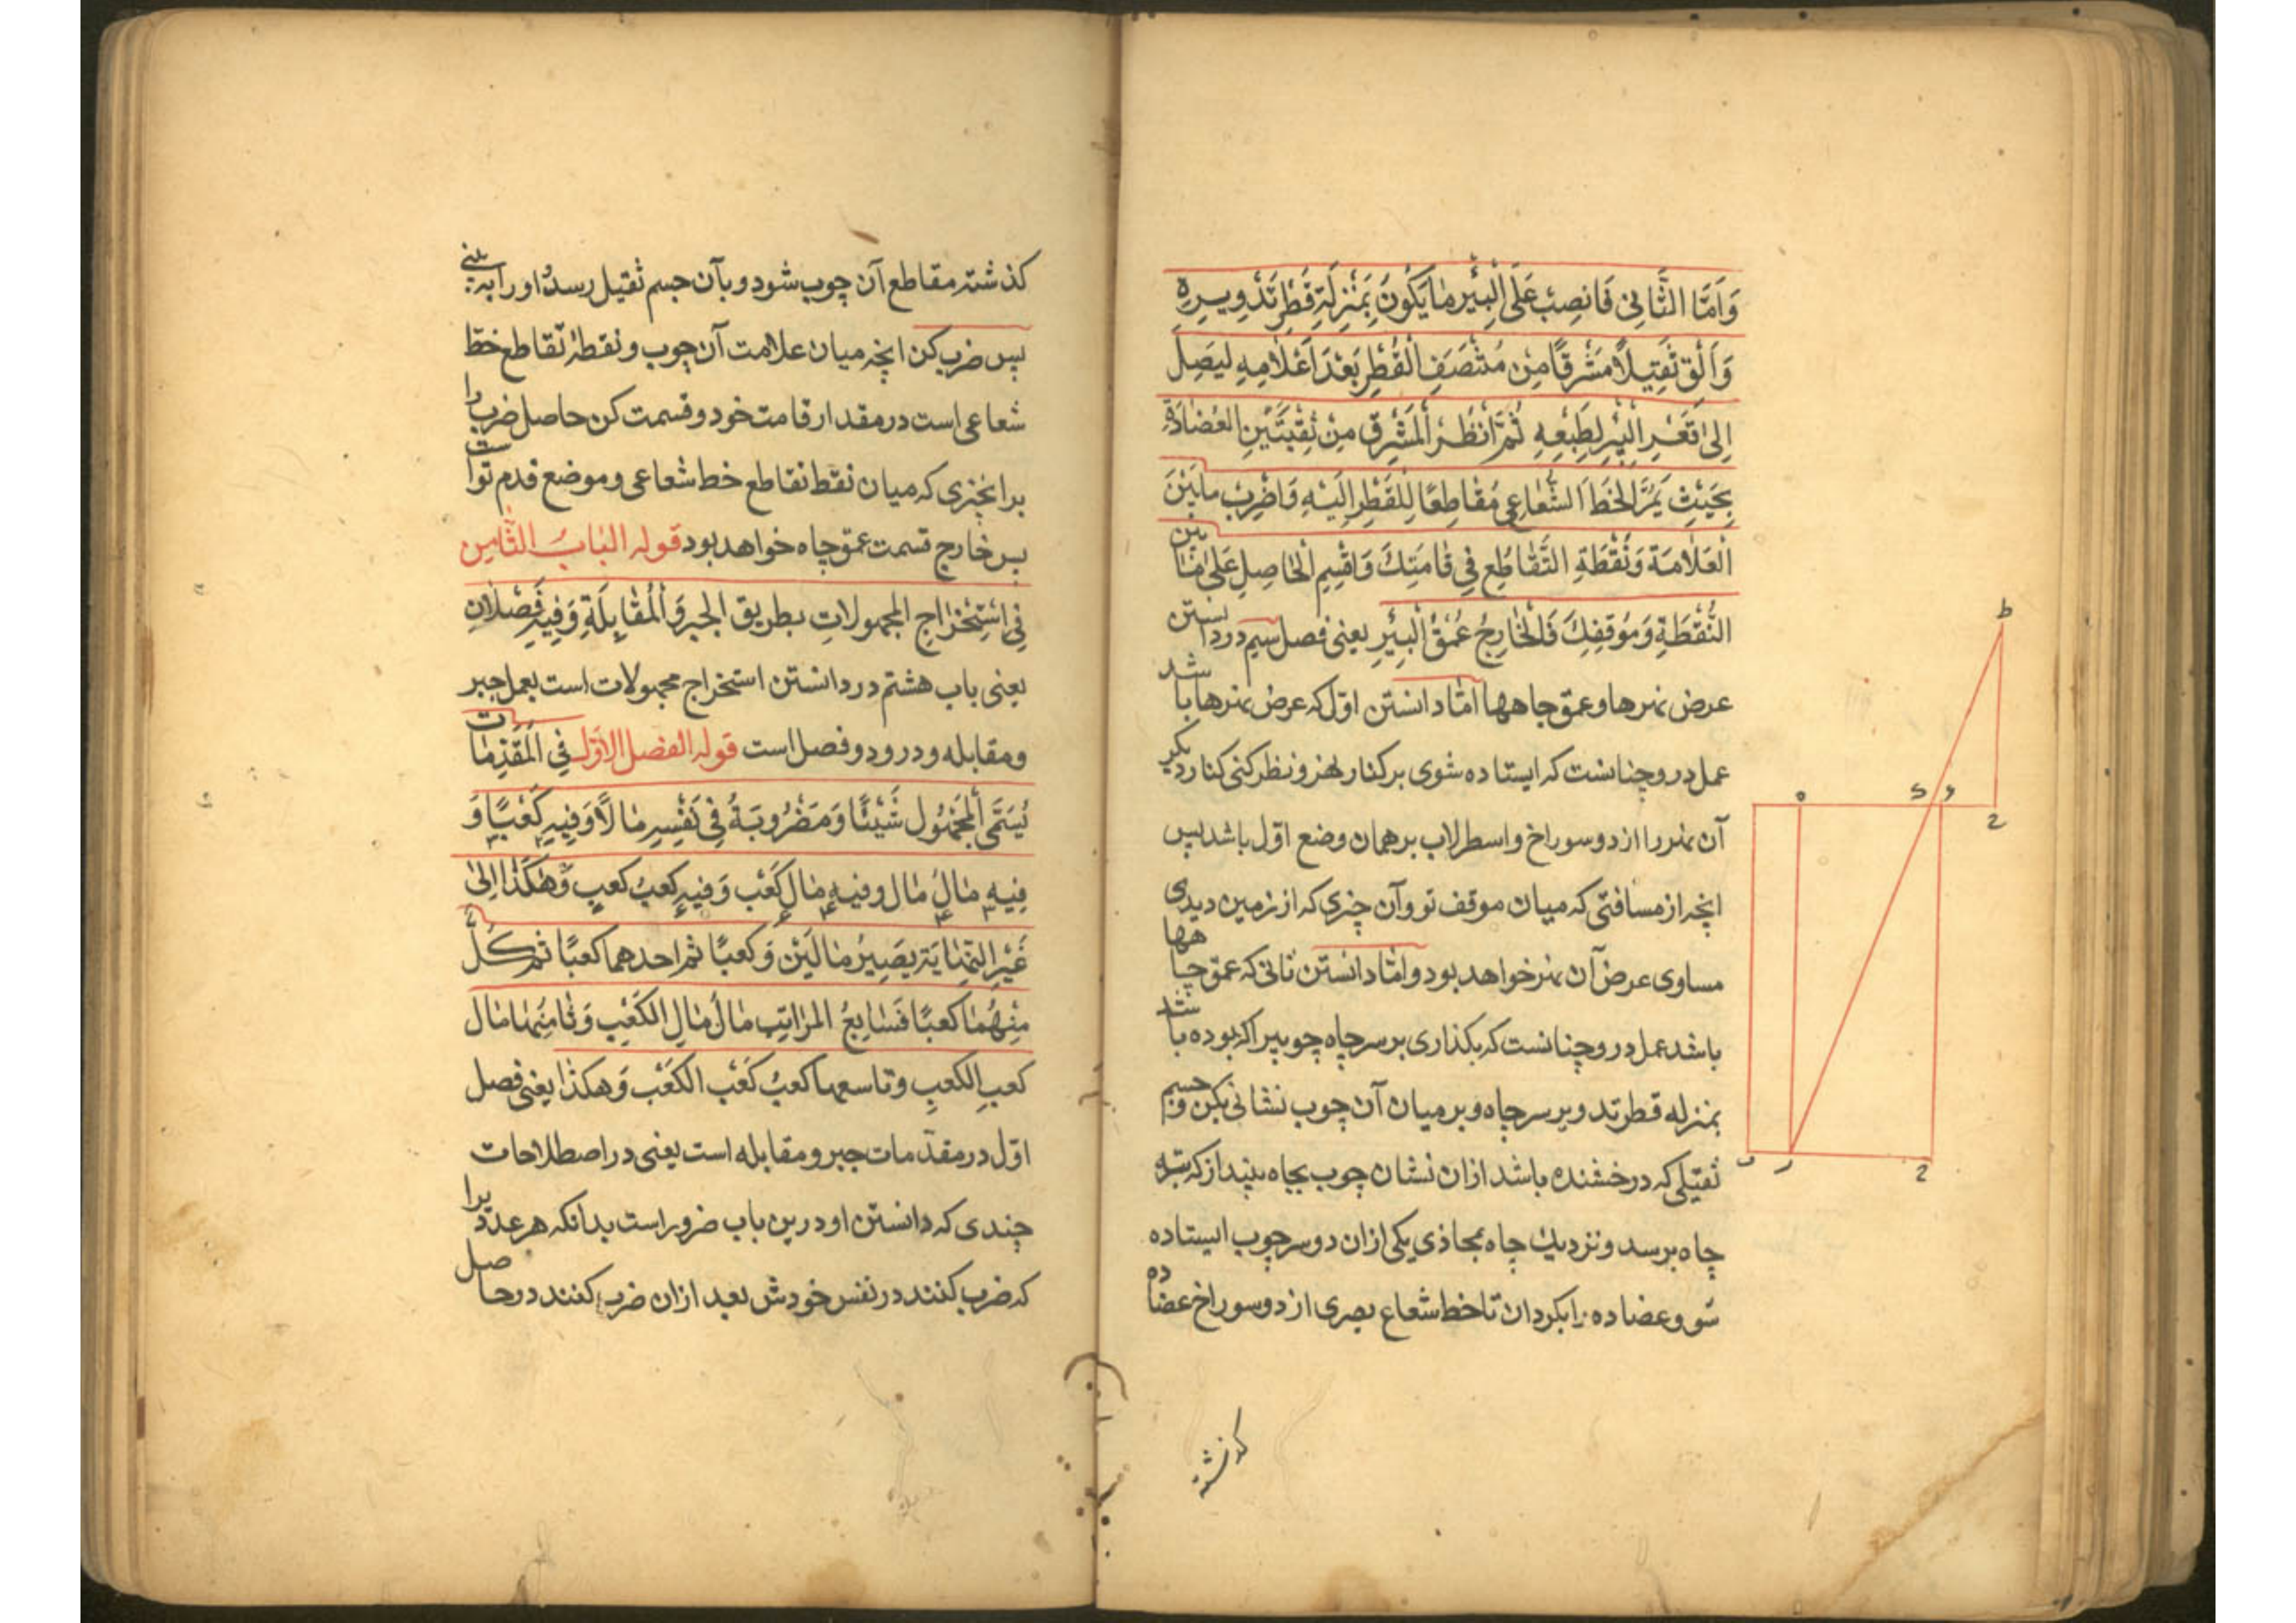 وَاَمَّا الثَّانِي فَانصِبْ عَلَى الْبِئْرِ مَا يَكُونُ بِمَنْزِلَةِ قُطْرِ تَدْوِيرِهِ
وَاَلْقِ ثَقِيلًا مَشْرِقًا مِنْ مُنْتَصَفِ الْقُطْرِ بَعْدَ اَعْلَامِهِ لِيَصِلَ
اِلىٰ قَعْرِ الْبِئْرِ لِطَبْعِهِ ثُمَّ انْظُرِ الْمَشْرِقَ مِنْ ثَقْبَتَيِنِ العُضَادَةِ
بِحَيْثِ يَمُرَّ الْخَطُّ الشُّعَاعِي مُقَاطِعًا لِلْقُطْرِ اِلَيْهِ وَاضْرِبْ مَابَيْنَ
الْعَلَامَةِ وَنُقْطَةِ التَّقَاطُعِ فِي قَامَتِكَ وَاقْسِمِ الْحَاصِلِ عَلىٰ مَا بين
النُّقْطَةِ وَمَوْقِفِكَ فَالْخَارِجُ عُمْقُ الْبِئْرِ يعنى فصل سيم در دانستن
عرض نهرها و عمق چاهها امّا دانستن اوّل که عرض نهرها باشد
عمل درو چنانست که ايستاده شوی بر کنار نهر و نظر کنی کنار ديگر
آن نهر را از دو سوراخ و اسطرلاب بر همان وضع اوّل باشد پس
انچه از مسافتی که ميان موقف تو و آن چيزی که از زمين ديدی
مساوی عرض آن نهر خواهد بود و امّا دانستن ثانی که عمق چاهها
باشد عمل درو چنانست که بگذاری بر سر چاه چوبيرا که بوده باشد
بمنزله قطر تدوير سر چاه و بر ميان آن چوب نشانی بکن و جسم
ثقيلی که درخشنده باشد ازان نشان چوب بچاه بينداز که بته
چاه برسد و نزديك چاه بمحاذی يکی ازان دو سر چوب ايستاده
شو و عضاده را بگردان تا خط شعاع بصری از دو سوراخ عضاده
کذشته
کذشته مقاطع آن چوب شود و بآن جسم ثقيل رسد و اورا به بينی
پس ضرب کن انچه ميان علامت آن چوب و نقطۀ تقاطع خط
شعاعی است در مقدار قامت خود و قسمت کن حاصل ضرب را
بر انچيزی که ميان نقطۀ تقاطع خط شعاعی و موضع قدم تو است
پس خارج قسمت عمق چاه خواهد بود قوله البَابُ الثَّامِن
فِي اسْتِخْرَاجِ المجهولاتِ بطريق الجبر وَالْمُقَابِلَةِ وَفِيهِ فَصْلَانِ
يعنى باب هشتم در دانستن استخراج مجهولات است بعمل جبر
ومقابله و درو دو فصل است قوله الفصل الاوّل فِي الْمُقَدِّمَات
يُسَمَّى الْمَجْهُولُ شَيْئًا وَمَضْرُوبَهُ فِي نَفْسِهِ مَالًا وَفِيهِ كَعْبًا وَ
فِيهِ مَالُ مَال و فيه مَال كَعْب وَفِيهِ كعبُ كعبٍ وَهٰكَذَا اِلىٰ
غَيْرِ النِّهَايَةِ يَصِيرُ مَالَيْنِ وَكعبًا ثم احدهما كعبًا ثم كُلُّ
مِنْهُمَا كعبًا فَسَابِعُ المراتِب مَالُ مَالِ الكَعْبِ وَثَامِنُهَا مَال
كعبِ الكعبِ وتاسعها كعبُ كَعْب الكَعْب وَهكذا يعنى فصل
اوّل در مقدّمات جبر و مقابله است يعنى در اصطلاحات
چندی که دانستن او درين باب ضرور است بدانکه هر عدد يرا
که ضرب کنند در نفس خودش بعد ازان ضرب کنند در حاصل